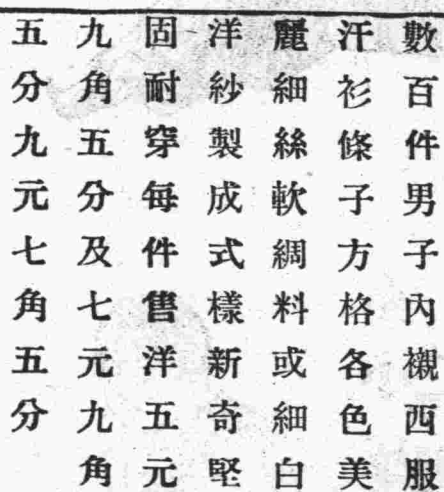 數百件男子內襯西服
汗衫條子方格各色美
麗細絲軟綢料或細白
洋紗製成式樣新奇堅
固耐穿每件售洋五元
九角五分及七元九角
五分九元七角五分